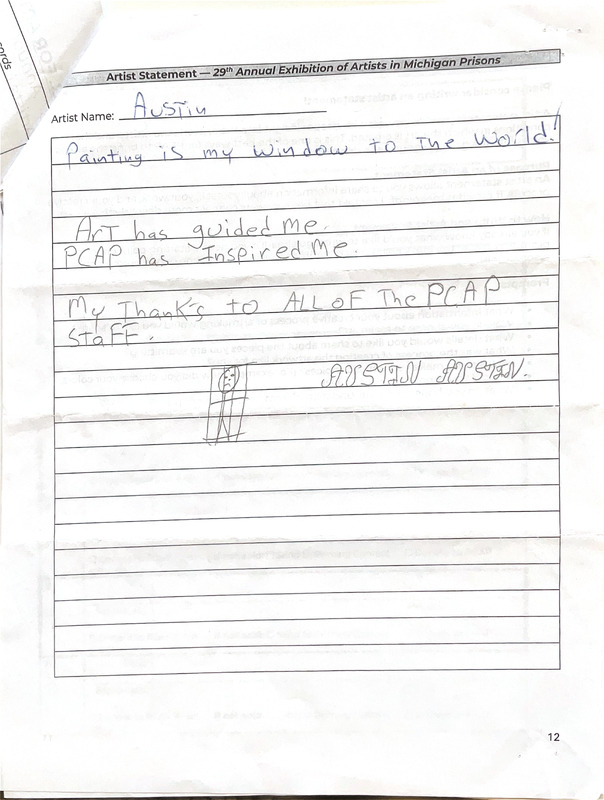 ords
Artist Statement — 29th Annual Exhibition of Artists in Michigan Prisons
Artist Name: Austin
Painting is my window to The World!
ArT has guided me.
PCAP has Inspired Me.
My Thanks to ALL oF The PCAP
StaFF.
AUSTIN AUSTIN.
12